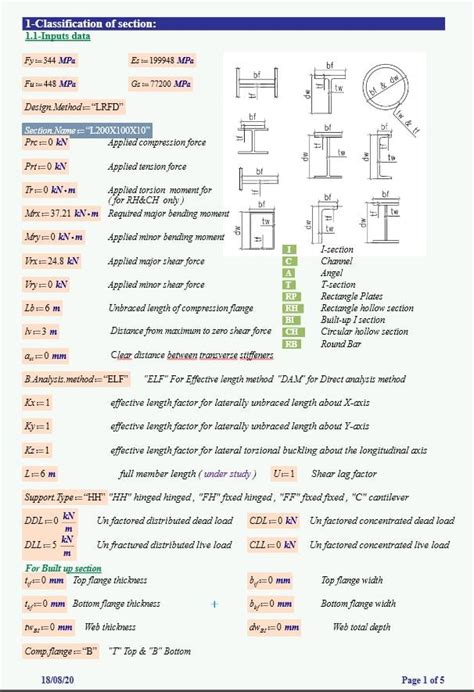 1-Classification of section:
1.1-Inputs data
Fy ≔ 344 MPa Es ≔ 199948 MPa
Fu ≔ 448 MPa Gs ≔ 77200 MPa
Design.Method ≔ “LRFD”
Section.Name ≔ “L200X100X10”
Prc ≔ 0 kN Applied compression force
Prt ≔ 0 kN Applied tension force
Tr ≔ 0 kN·m Applied torsion moment for
( for RH&CH only )
Mrx ≔ 37.21 kN·m Required major bending moment
Mry ≔ 0 kN·m Applied minor bending moment
Vrx ≔ 24.8 kN Applied major shear force
Vry ≔ 0 kN Applied minor shear force
Lb ≔ 6 m Unbraced length of compression flange
lv ≔ 3 m Distance from maximum to zero shear force
a_st ≔ 0 mm Clear distance between transverse stiffeners
bf
tf
dw
tw
bf & dw
tw & tf
I I-section
C Channel
A Angel
T T-section
RP Rectangle Plates
RH Rectangle hollow section
BI Built-up I section
CH Circular hollow section
RB Round Bar
B.Analysis.method ≔ “ELF” "ELF" For Effective length method "DAM" for Direct analysis method
Kx ≔ 1 effective length factor for laterally unbraced length about X-axis
Ky ≔ 1 effective length factor for laterally unbraced length about Y-axis
Kz ≔ 1 effective length factor for lateral torsional buckling about the longitudinal axis
L ≔ 6 m full member length ( under study ) U ≔ 1 Shear lag factor
Support.Type ≔ “HH” "HH" hinged hinged , "FH" fixed hinged , "FF" fixed fixed , "C" cantilever
DDL ≔ 0 kN/m Un factored distributed dead load CDL ≔ 0 kN Un factored concentrated dead load
DLL ≔ 5 kN/m Un fractured distributed live load CLL ≔ 0 kN Un factored concentrated live load
For Built up section
t_tf ≔ 0 mm Top flange thickness b_tf ≔ 0 mm Top flange width
t_bf ≔ 0 mm Bottom flange thickness b_bf ≔ 0 mm Bottom flange width
tw_BI ≔ 0 mm Web thickness dw_BI ≔ 0 mm Web total depth
Comp.flange ≔ “B” "T" Top & "B" Bottom
18/08/20 Page 1 of 5